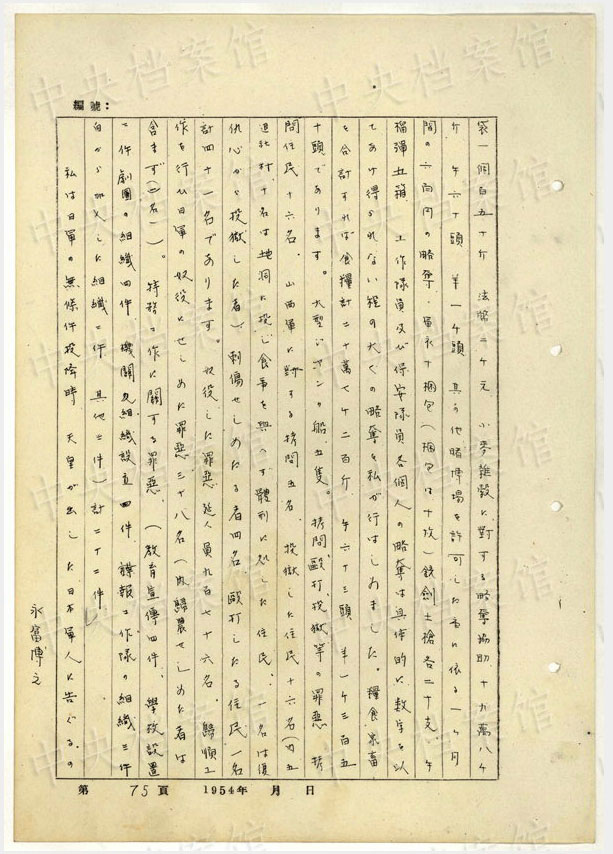 編號：
袋一個百五十斤　法幣二千元　小麦雑穀に対する略奪協助十九萬八千
斤　牛六十頭　羊一千頭　其の他賭博場を許可した事に依る一ヶ月
間の六百円の略奪・軍衣十梱包(梱包は十枚)銃剣土槍各二十支、手
榴弾五箱、工作隊員及び保安隊員各個人の略奪は具体的に数字を以
てあげ得られない程の大くの略奪を私が行はしめました。糧食家畜
を合計すれば食糧計二十萬七千二百斤、牛六十三頭　羊一千三百五
十頭であります。大型ジャンク船五隻。拷問、毆打、投獄等の罪悪　拷
問住民十六名、山西軍に対する拷問五名、投獄した住民十六名(内五
道社村十名は地洞に投じ食事を與へず體刑に処した住民、一名は復
仇心から投獄した者)刺傷せしめたる者四名、毆打したる住民一名
計四十一名であります。奴役した罪悪延人員九百七十六名。歸順工
作を行ひ日軍の奴役にせしめた罪悪三十八名(内歸農せしめた者は
含まず(二名))。特務工作に関する罪悪、(教育宣傳四件、學校設置
二件　劇團の組織四件　機関及組織設置四件　諜報工作隊の組織三件
自から加入した組織二件　其他三件)計二十二件
私は日軍の無條件投降時　天皇が出した日本軍人に告ぐるの
永富博之
第　75頁　1954年　月　日
中央档案馆